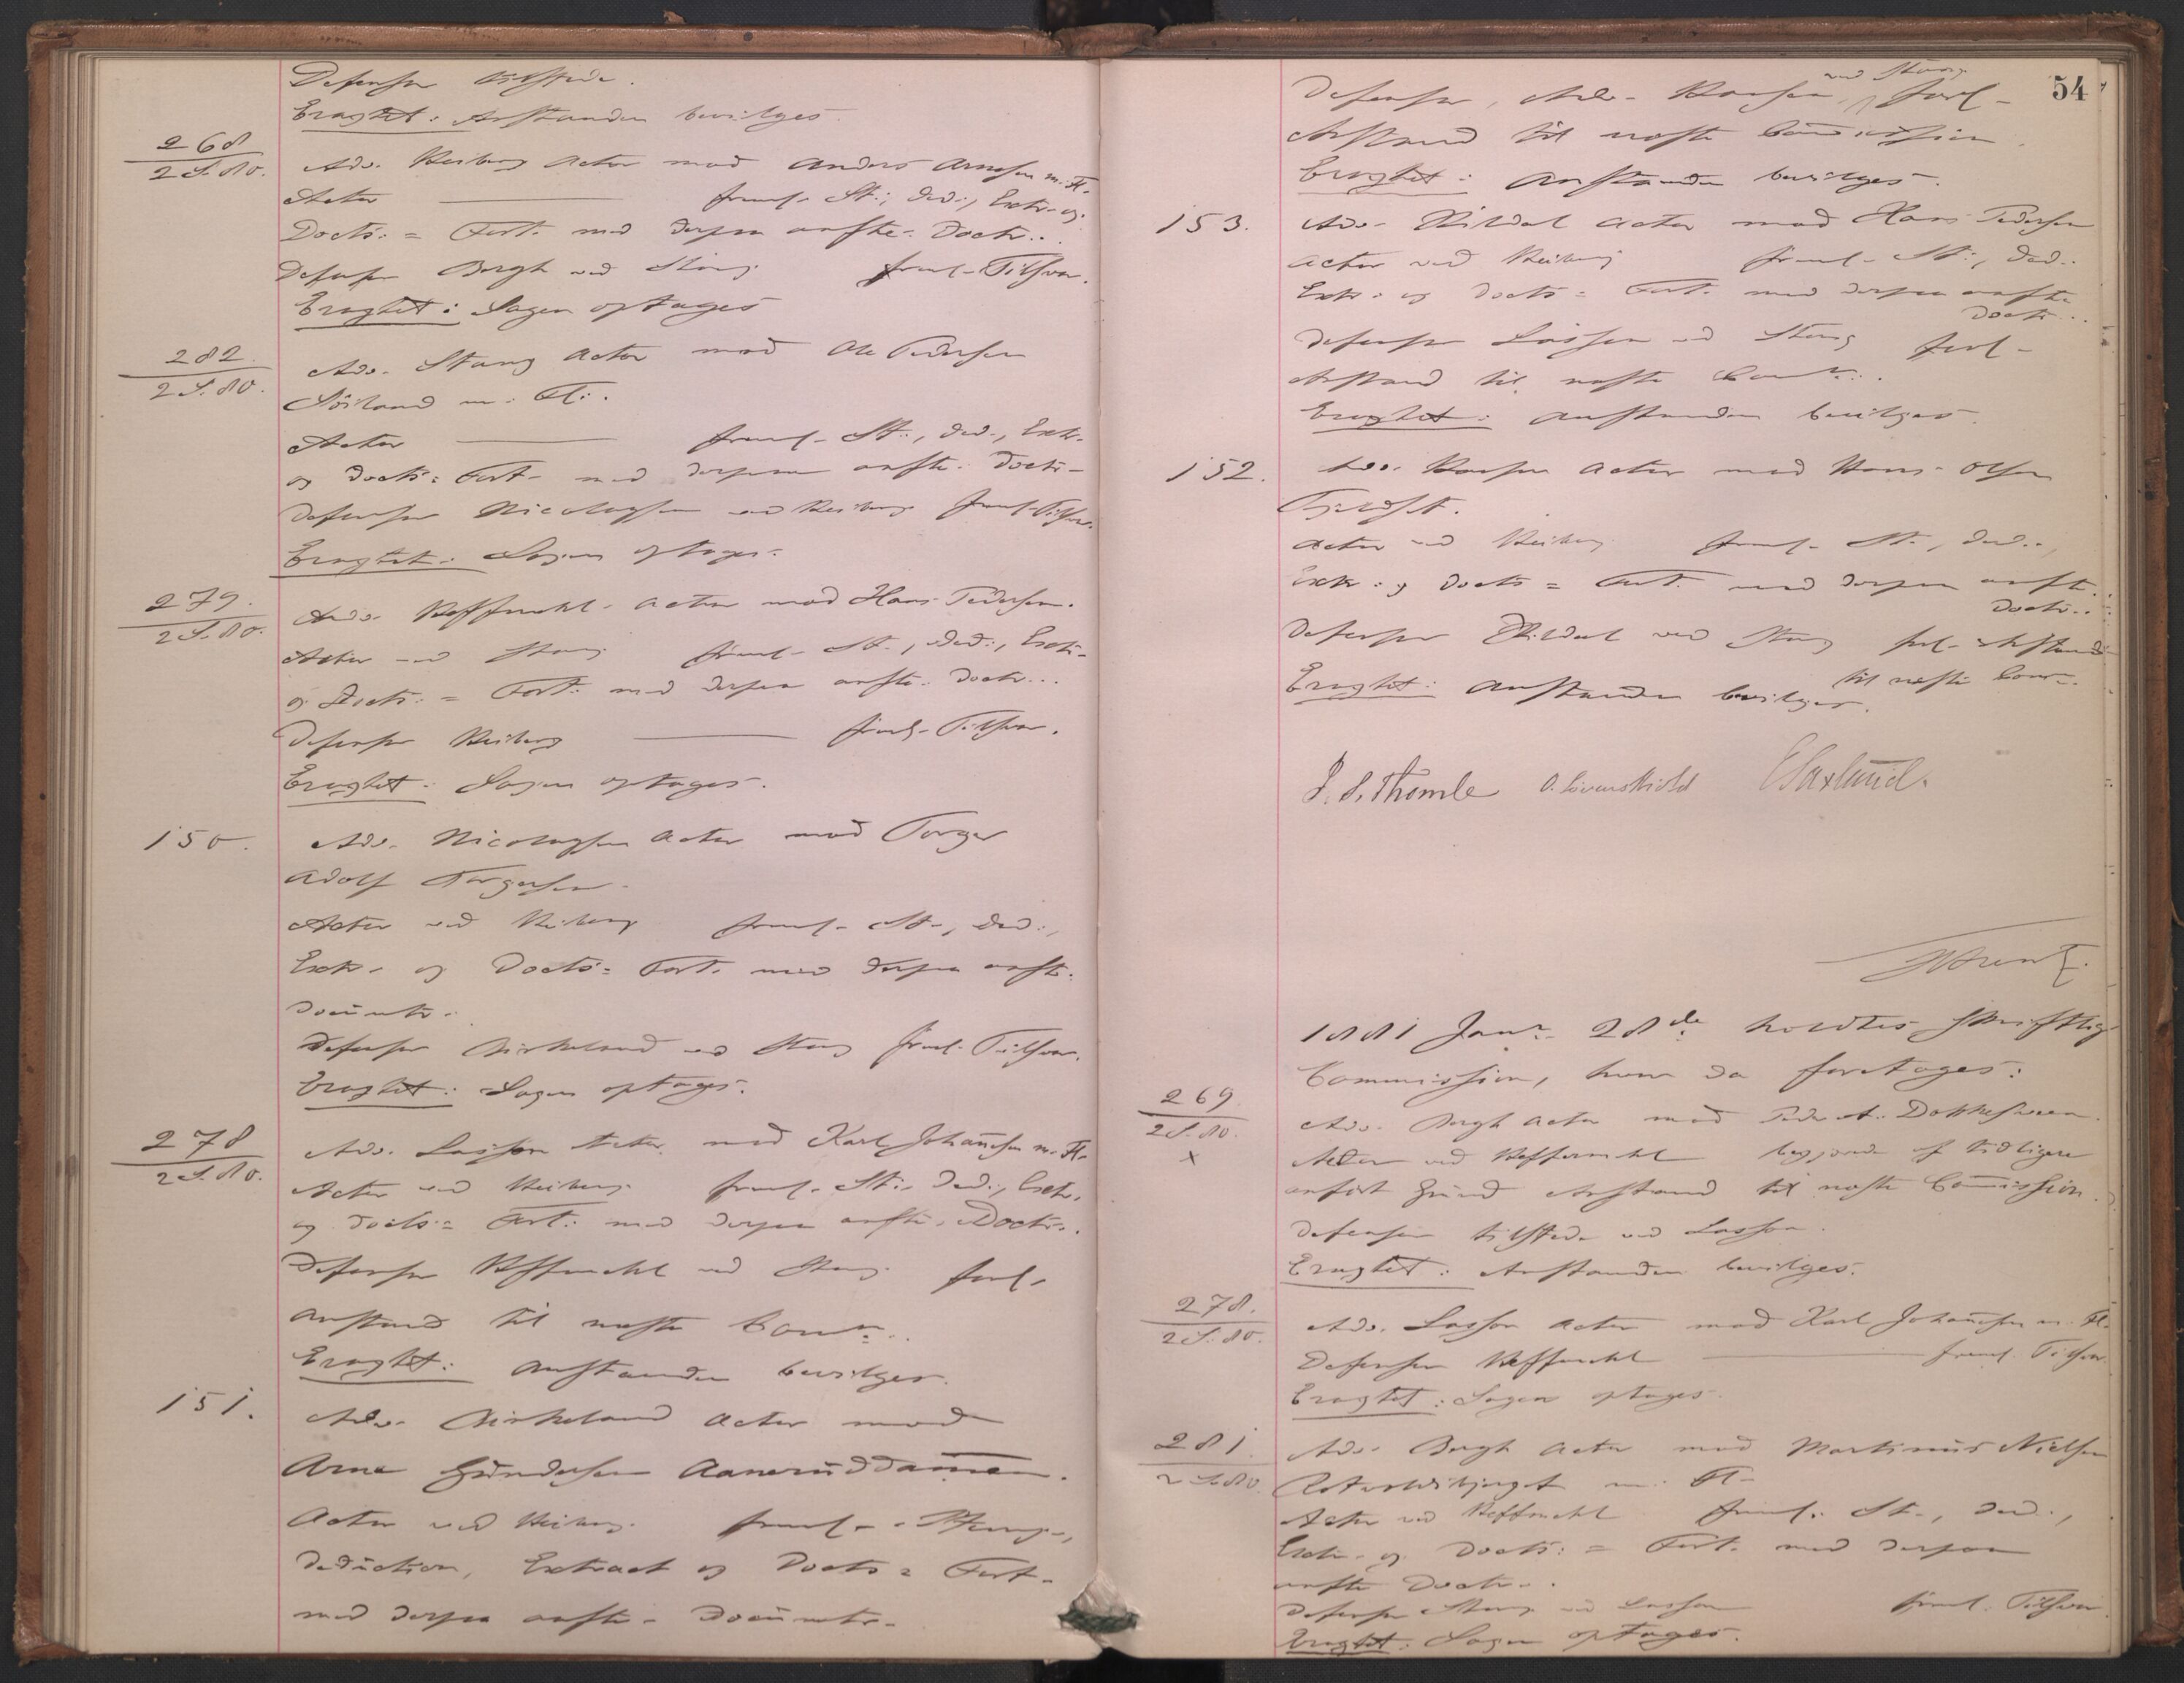 Defensor tilstede.
Eragtet: Anstanden bevilges.
268
2 S. 80.
Adv. Heiberg Actor mod Anders Arnesen m. Fl.
Actor — freml. St., Ded., Extr. og
Docts. = Fort. med derpaa anførte Docts.
Defensor Bergh ved Stang freml. Tilsvar.
Eragtet: Sagen optages
282
2 S. 80.
Adv. Stang Actor mod Ole Pedersen
Söiland m. Fl.
Actor — freml. St., Ded., Extr.
og Docts. = Fort. med derpaa anførte Docts.
Defensor Nicolaysen ved Heiberg freml. Tilsvar.
Eragtet: Sagen optages.
279.
2 S. 80.
Adv. Heffermehl Actor mod Hans Pedersen.
Actor ved Stang freml. St., Ded., Extr.
og Docts. = Fort. med derpaa anførte Docts.
Defensor Heiberg — freml. Tilsvar.
Eragtet: Sagen optages.
150.
Adv. Nicolaysen Actor mod Torger
Adolf Torgersen.
Actor ved Heiberg freml. St., Ded.,
Extr. og Docts. = Fort. med derpaa anførte
Documtr.
Defensor Birkeland ved Stang freml. Tilsvar.
Eragtet: Sagen optages.
278
2 S. 80.
Adv. Lasson Actor mod Karl Johannesen m. Fl.
Actor ved Heiberg freml. St., Ded., Extr.
og Docts. = Fort. med derpaa anførte Docts.
Defensor Heffermehl ved Stang forl.
Anstand til næste Comn.
Eragtet: Anstanden bevilges.
151.
Adv. Birkeland Actor mod
Arne Gundersen Aanerüddammen.
Actor ved Heiberg freml. Stevng.,
Deduction, Extract og Docts = Fort.
med derpaa anførte Documtr.
54
Defensor, Adv. Kaasen, ved Stang forl.
Anstand til næste Commission.
Eragtet: Anstanden bevilges.
153.
Adv. Kildal Actor mod Hans Pedersen
Actor ved Heiberg freml. St., Ded.
Extr. og Docts = Fort. med derpaa anførte
Docts.
Defensor Lasson ved Stang forl.
Anstand til næste Comn.
Eragtet: Anstanden bevilges.
152.
Adv. Kaasen Actor mod Hans Olsen
Actor ved Heiberg freml. St., Ded.,
Extr. og Docts = Fort. med derpaa anførte
Docts.
Defensor Kildal ved Stang forl. Anstand
til næste Comn.
Eragtet: Anstanden bevilges.
J. S. Thomle O. Løvenskiold E Saxlund.
1881 Janr. 28de holdtes skriftlig
Commission, hvor da foretages:
269
2 S. 80.
x
Adv. Bergh Actor mod Peder A. Dokkesveen.
Actor ved Heffermehl begjærede af tidligere
anført Grund Anstand til næste Commission.
Defensor tilstede ved Lasson.
Eragtet: Anstanden bevilges.
278.
2 S. 80.
Adv. Lasson Actor mod Karl Johannesen m. Fl.
Defensor Heffermehl — freml. Tilsvar.
Eragtet: Sagen optages.
281.
2 S. 80.
Adv. Bergh Actor mod Martinus Nielsen
m. Fl.
Actor ved Heffermehl freml. St., Ded.,
Extr. og Docts. = Fort. med derpaa
anførte Docts.
Defensor Stang ved Lasson freml. Tilsvar.
Eragtet: Sagen optages.